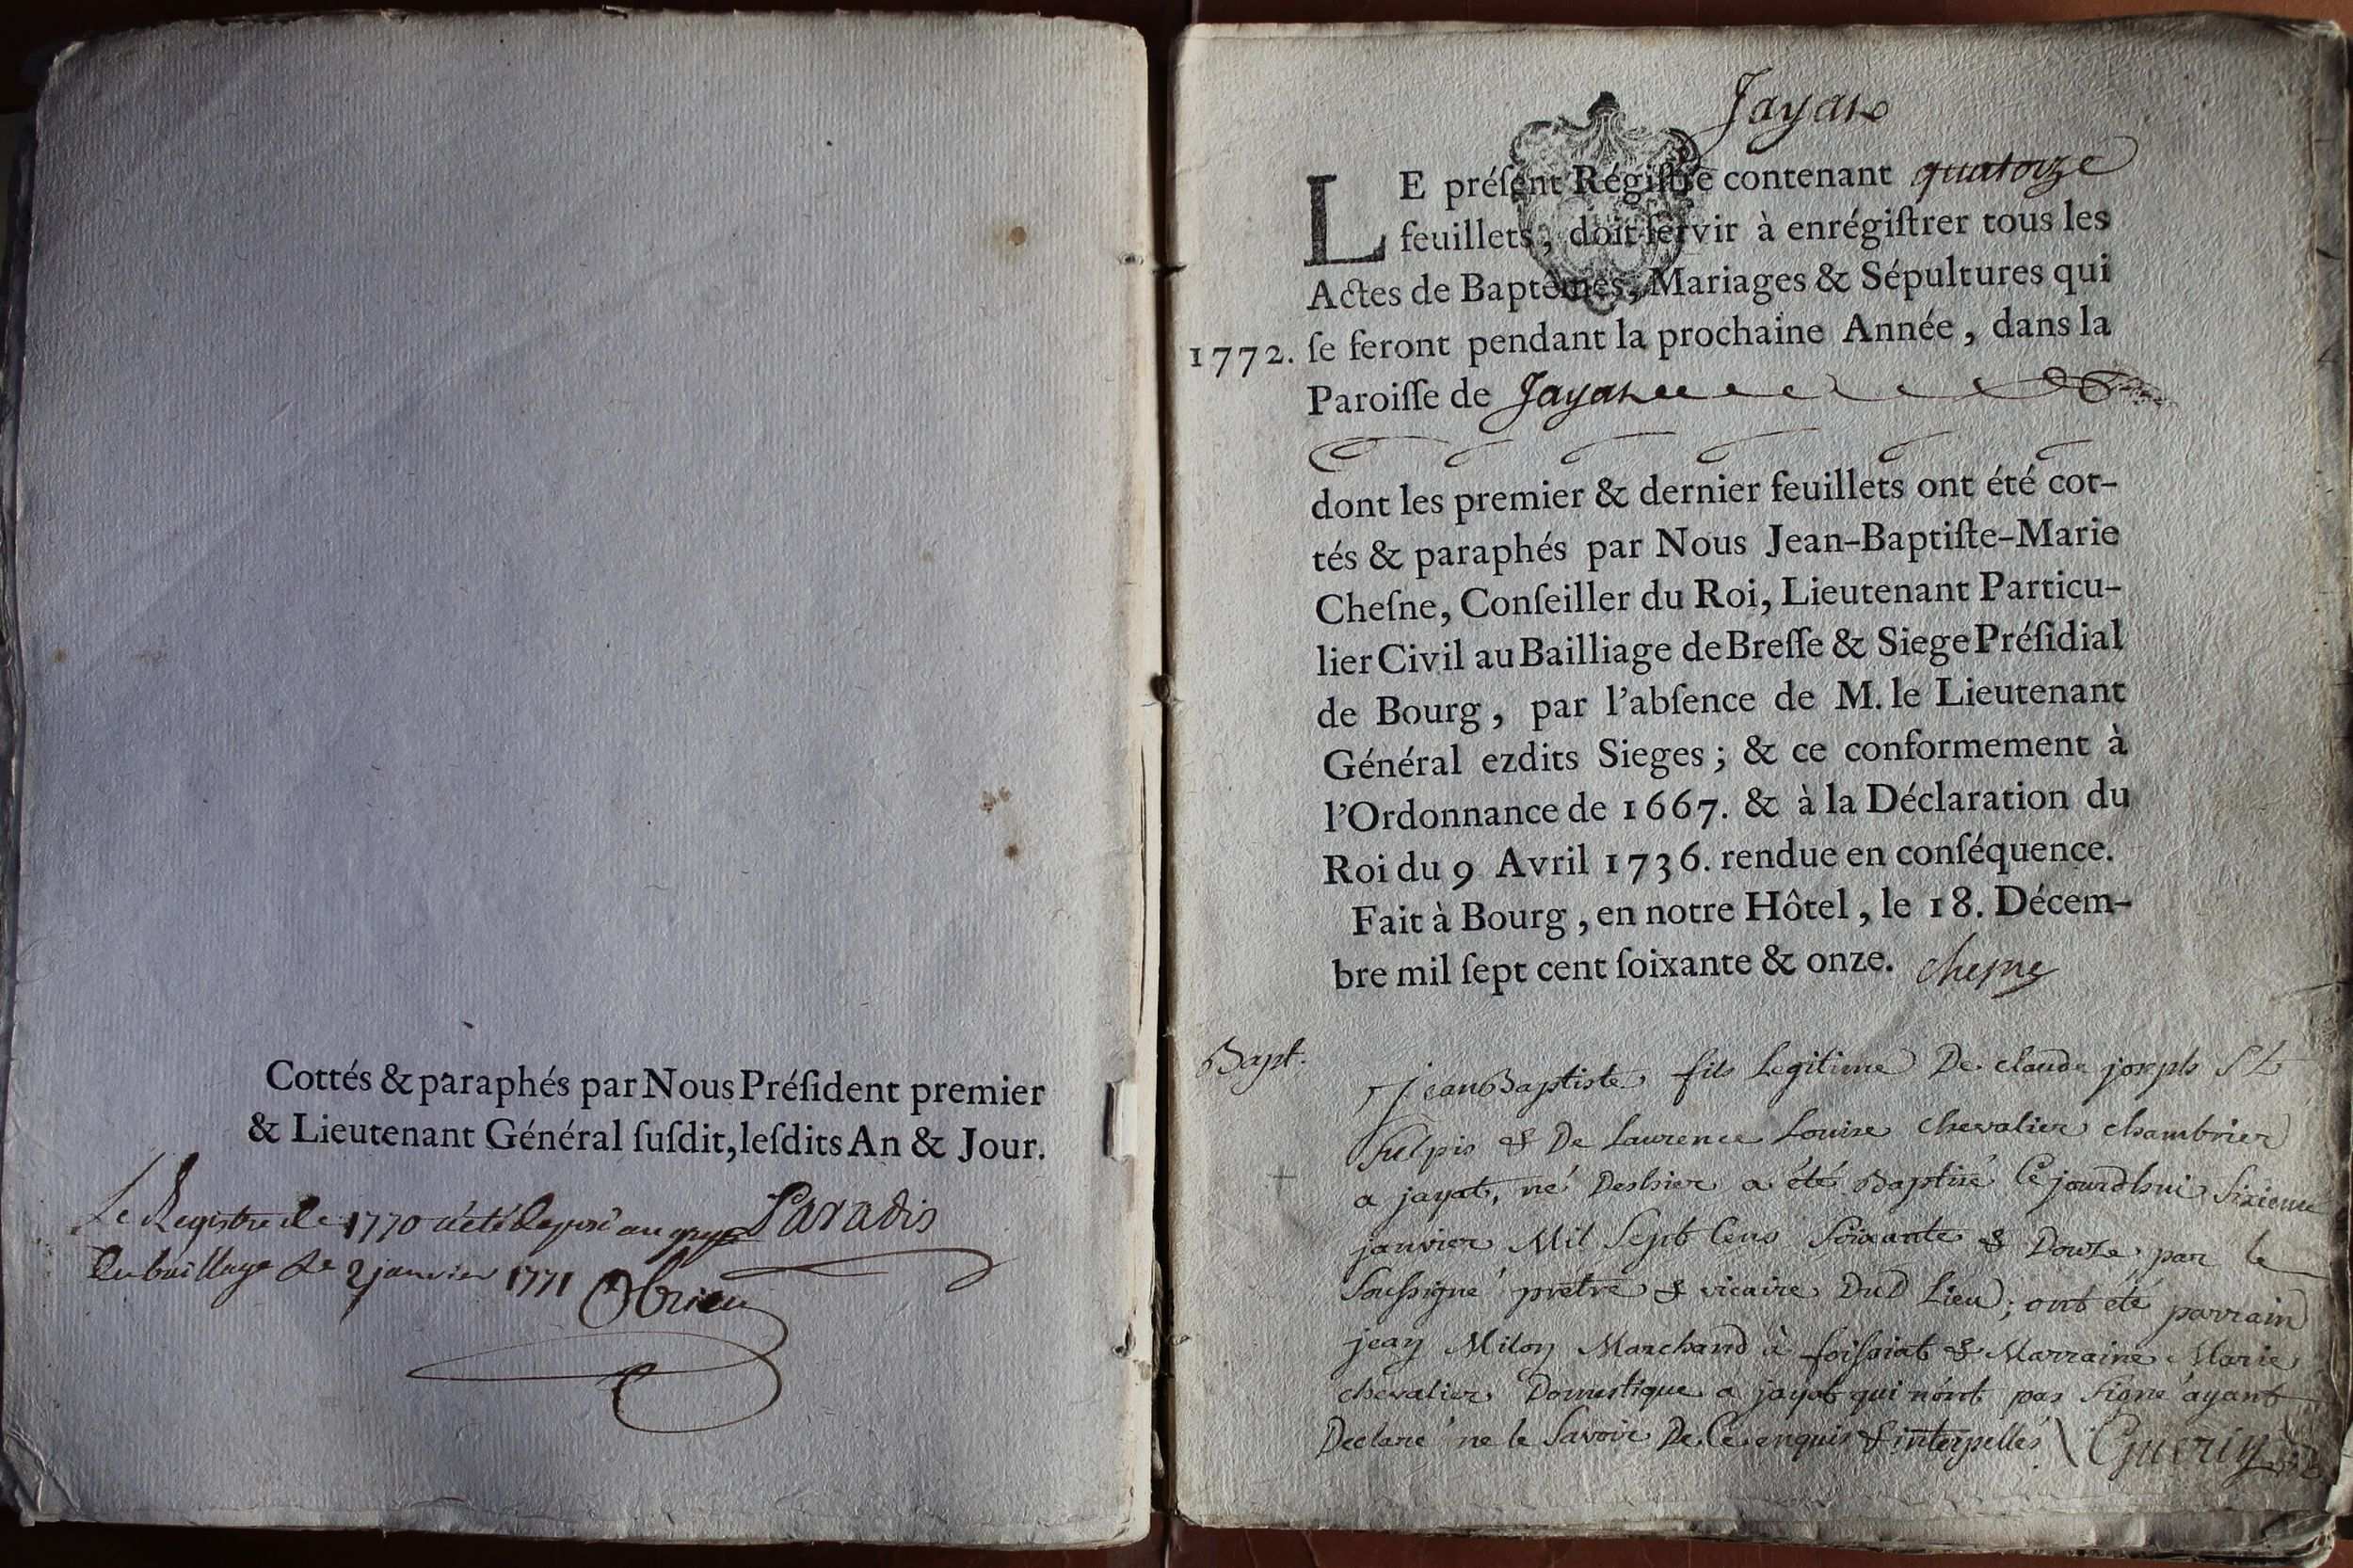 Cottés & paraphés par Nous Préſident premier
& Lieutenant Général ſuſdit, leſdits An & Jour.
Le Registre de 1770 a été deposé au greffe Paradis
du bailliage le 2 janvier 1771
Jayat
LE préſent Régiſtre contenant quatorze
feuillets, doit ſervir à enrégiſtrer tous les
Actes de Baptêmes, Mariages & Sépultures qui
1772. ſe feront pendant la prochaine Année, dans la
Paroiſſe de Jayat
dont les premier & dernier feuillets ont été cot-
tés & paraphés par Nous Jean-Baptiſte-Marie
Cheſne, Conſeiller du Roi, Lieutenant Particu-
lier Civil au Bailliage de Breſſe & Siege Préſidial
de Bourg, par l'abſence de M. le Lieutenant
Général ezdits Sieges; & ce conformement à
l'Ordonnance de 1667. & à la Déclaration du
Roi du 9 Avril 1736. rendue en conſéquence.
Fait à Bourg, en notre Hôtel, le 18. Décem-
bre mil ſept cent ſoixante & onze. chesne
Bapt.
jean Baptiste fils Legitime De claude joseph St
Sulpis & De Laurence Louise chevalier chambrier
a jayat, né Deshier a été Baptisé Cejourdhui Sixieme
janvier Mil Sept Cens Soixante & Douze, par le
Soussigné prêtre & vicaire Dud Lieu; ont été parrain
jean Milon Marchand à foissiat & Marraine Marie
chevalier Domestique a jayat qui n'ont pas Signé ayant
Declaré ne le Savoir De Ce enquis & interpellés Guerin